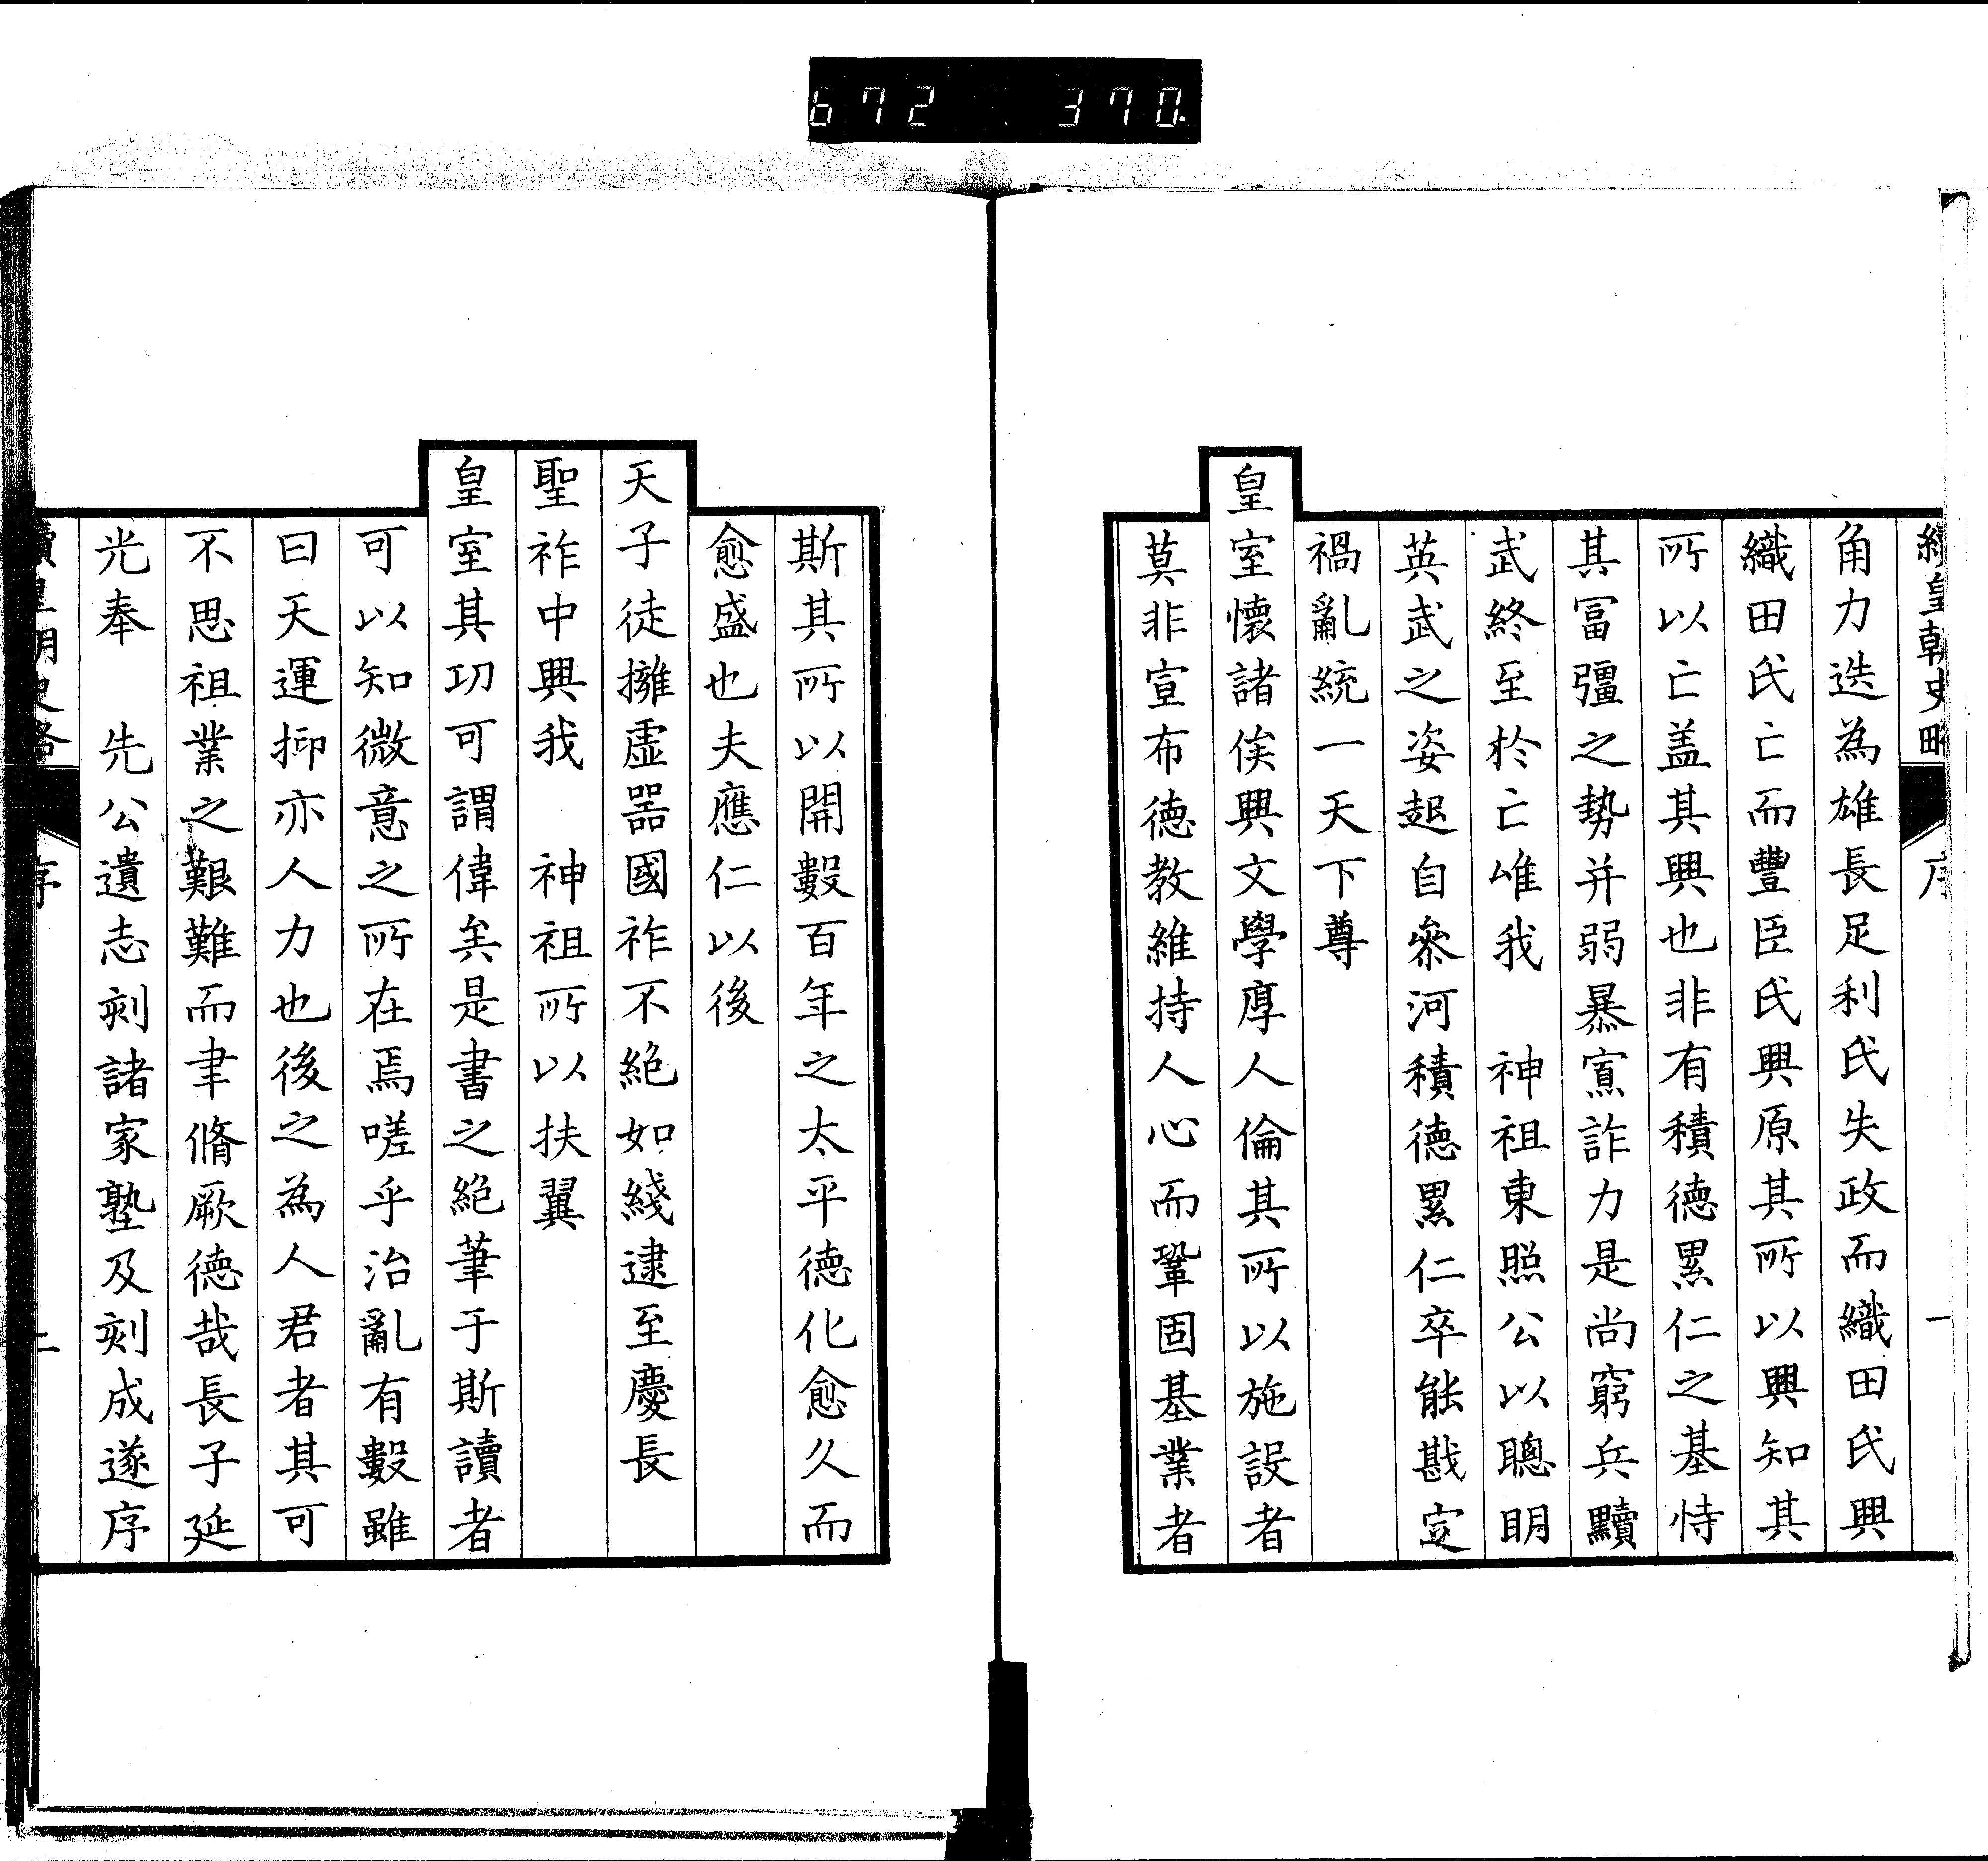 672 370
續皇朝史略 序 一
角力迭為雄長足利氏失政而織田氏興
織田氏亡而豐臣氏興原其所以興知其
所以亡盖其興也非有積德累仁之基恃
其冨彊之勢并弱暴寡詐力是尚窮兵黷
武終至於亡唯我　神祖東照公以聰明
英武之姿起自參河積德累仁卒能戡定
禍亂統一天下尊
皇室懷諸侯興文學厚人倫其所以施設者
莫非宣布德教維持人心而鞏固基業者
斯其所以開數百年之太平德化愈久而
愈盛也夫應仁以後
天子徒擁虛器國祚不絶如綫逮至慶長
聖祚中興我　神祖所以扶翼
皇室其功可謂偉矣是書之絶筆于斯讀者
可以知微意之所在焉嗟乎治亂有數雖
曰天運抑亦人力也後之為人君者其可
不思祖業之艱難而聿脩厥德哉長子延
光奉　先公遺志刻諸家塾及刻成遂序
續皇朝史略 序